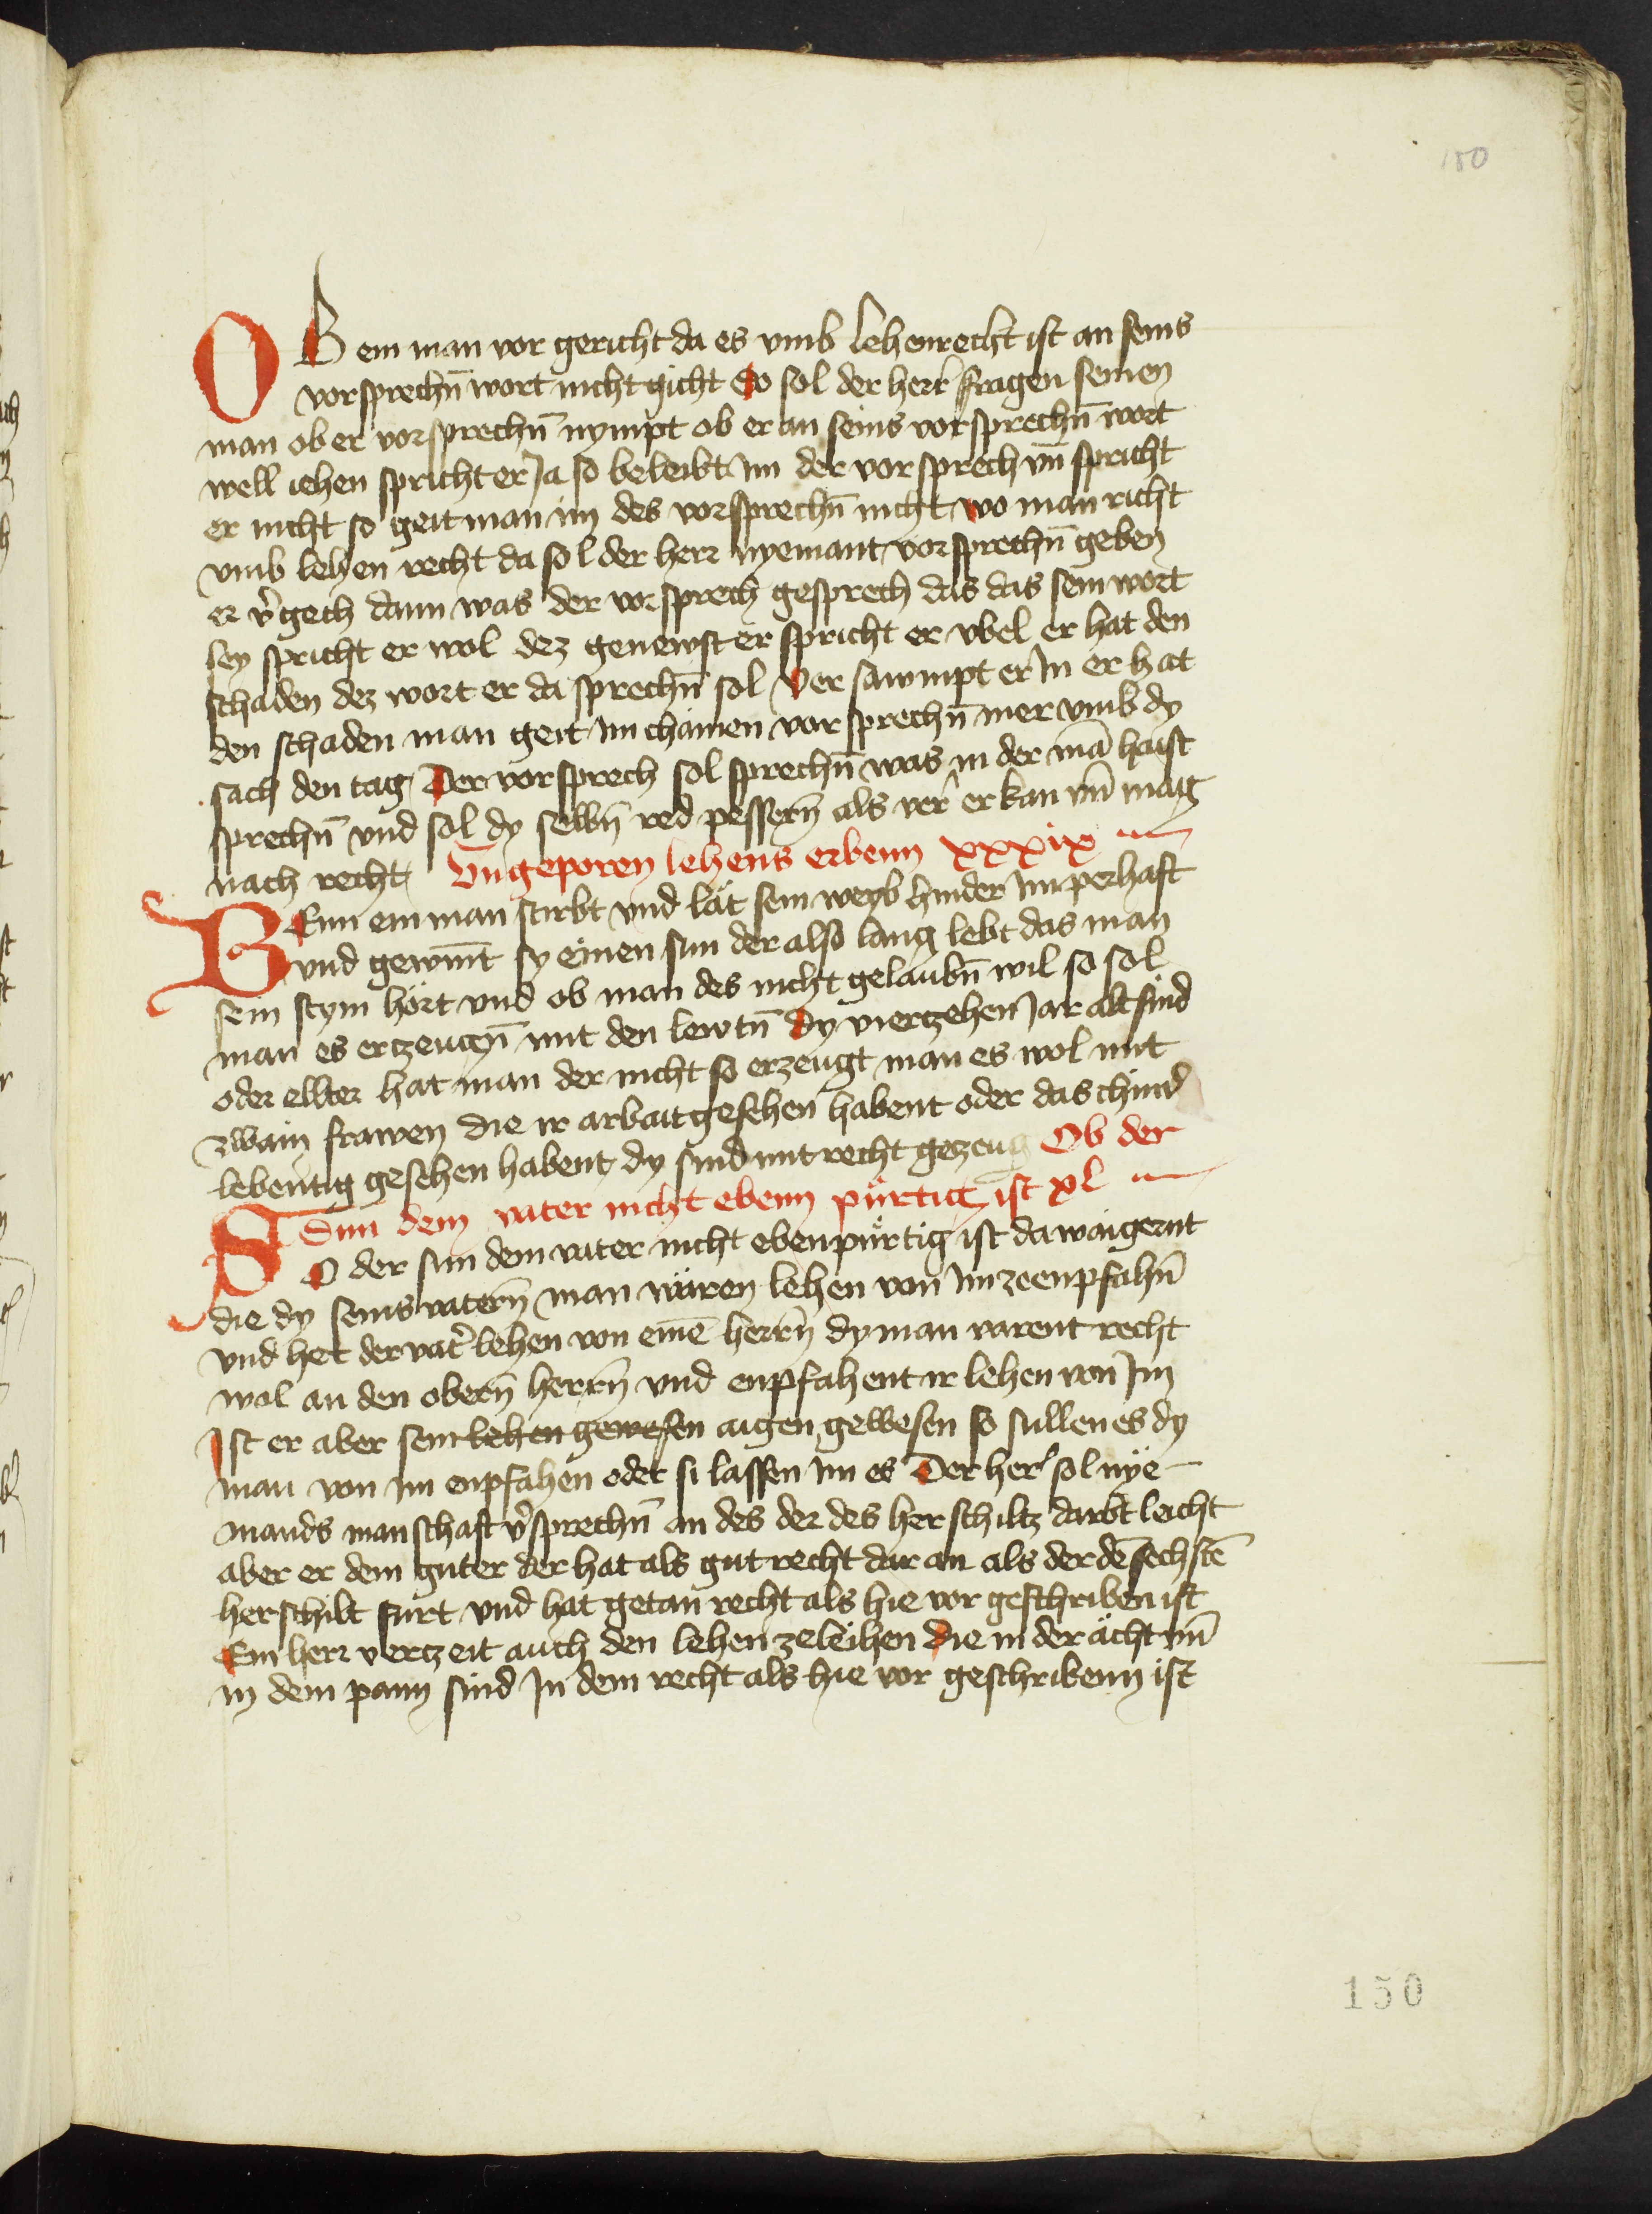 150
OB ein man vor gericht da es vmb lehenrecht ist an seins
vorsprechn̄ wort nicht gicht So sol der herr fragen seinen
man ob er vorsprechn̄ nympt ob er an seins vorsprechn̄ wort
well iehen spricht er Ja so beleibt im der vorsprech vn̄ spricht
er nicht so geit man im des vorsprechn̄ nicht wo man richt
vmb lehen recht da sol der herr nyemant vorsprechn̄ geben
er v̾gech dann was der vorsprech gesprech das das sein wort
sey spricht er wol dez genewst er spricht er vbel er hat den
schaden dez wort er da sprechn̄ sol Versawmpt er In er hat
den schaden man geit im chainen vorsprechn̄ mer vmb dy
sach den tag Der vorsprech sol sprechn̄ was in der mā haist
sprechn̄ vnd sol dy selbn̄ red pessern̄ als verr er kan vn̄ mag
nach recht Vngeporen lehens erbenn xxxix
WEnn ein man stirbt vnd lät sein weyb hinder im perhaft
vnd gewin̄t sy einen sun der also lang lebt das man
sein stym hört vnd ob man des nicht gelaubn̄ wil so sol
man es ertzeugn̄ mit den lewtn̄ dy viertzehen Jar alt sind
oder ellter hat man der nicht so erzeugt man es wol mit
zwain frawen die ir arbait gesehen habent oder das chind
lebentig gesehen habent dy sind mit recht gezeug Ob der
Sun dem vater nicht ebenn pürtig ist xl
SO der sun dem vater nicht ebenpürtig ist da waigernt
die dy seins vatern̄ man wären lehen von im ze enpfahn̄
vnd het der vat̾ lehen von einē herrn̄ dy man varent recht
wol an den obern̄ herrn̄ vnd enpfahent ir lehen von Im
Ist er aber sein lehen gewesen aigen gewesen so sullen es dy
man von im enpfahen oder si lassen im es Der her sol nye
mands manschaft v̾sprechn̄ an des der des herschiltz darbt leicht
aber er dem guter der hat als gut recht dar an als der dē sechstē
herschilt furt vnd hat getan recht als hie vor geschriben ist
Ein herr vertzeit auch den lehen ze leihen die in der ächt vn̄
in dem pann sind In dem recht als hie vor geschribenn ist
150